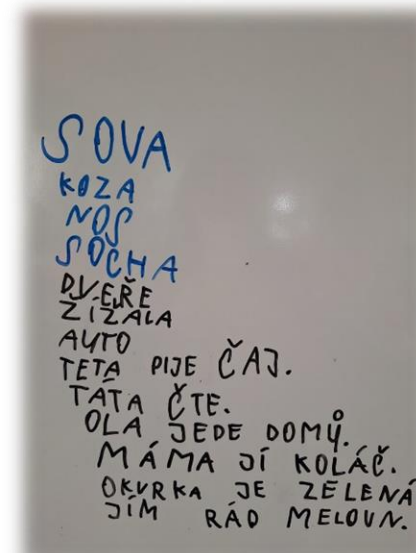 SOVA
KOZA
NOS
SOCHA
DVEŘE
ŽÍŽALA
AUTO
TETA PIJE ČAJ.
TÁTA ČTE.
OLA JEDE DOMŮ.
MÁMA JÍ KOLÁČ.
OKURKA JE ZELENÁ
JÍM RÁD MELOUN.